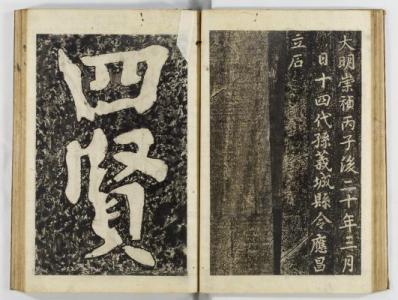 大明崇禎丙子後二十年三月
日十四代孫義城縣令應昌
立石
四賢